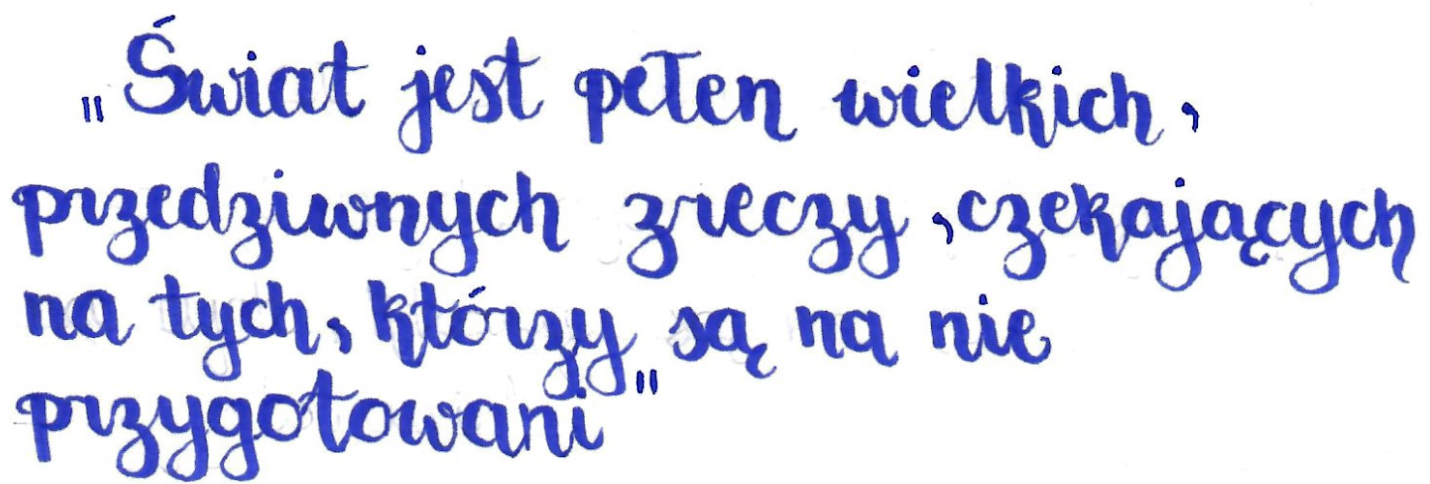 „Świat jest pełen wielkich,
przedziwnych zreczy, czekających
na tych, którzy są na nie
przygotowani"